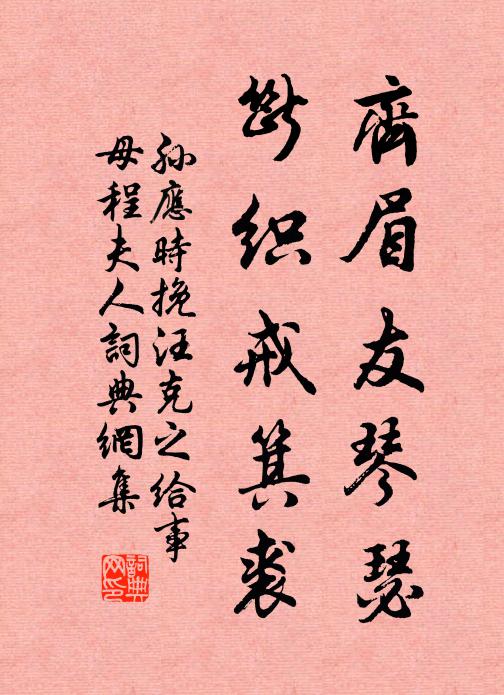 齊眉友琴瑟
斷織戒箕裘
孫應時挽汪克之給事
母程夫人詞典網集
詞典网印